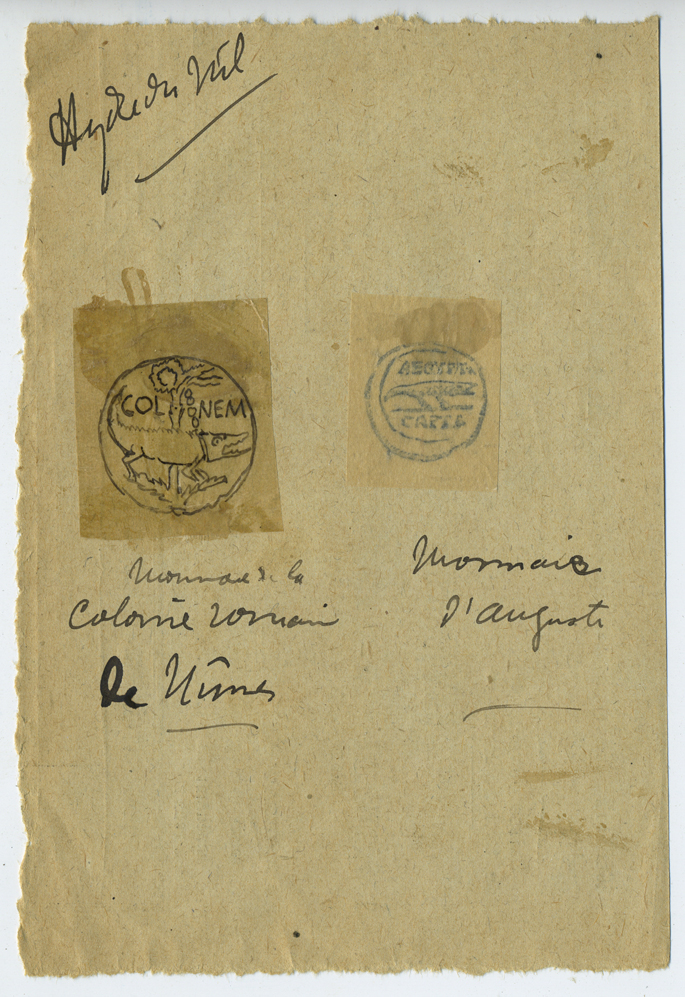 Hydre du Nil
COL NEM
AEGYPT
CAPTA
Monnaie de la
Colonie romain
de Nîmes
Monnaie
d'Auguste